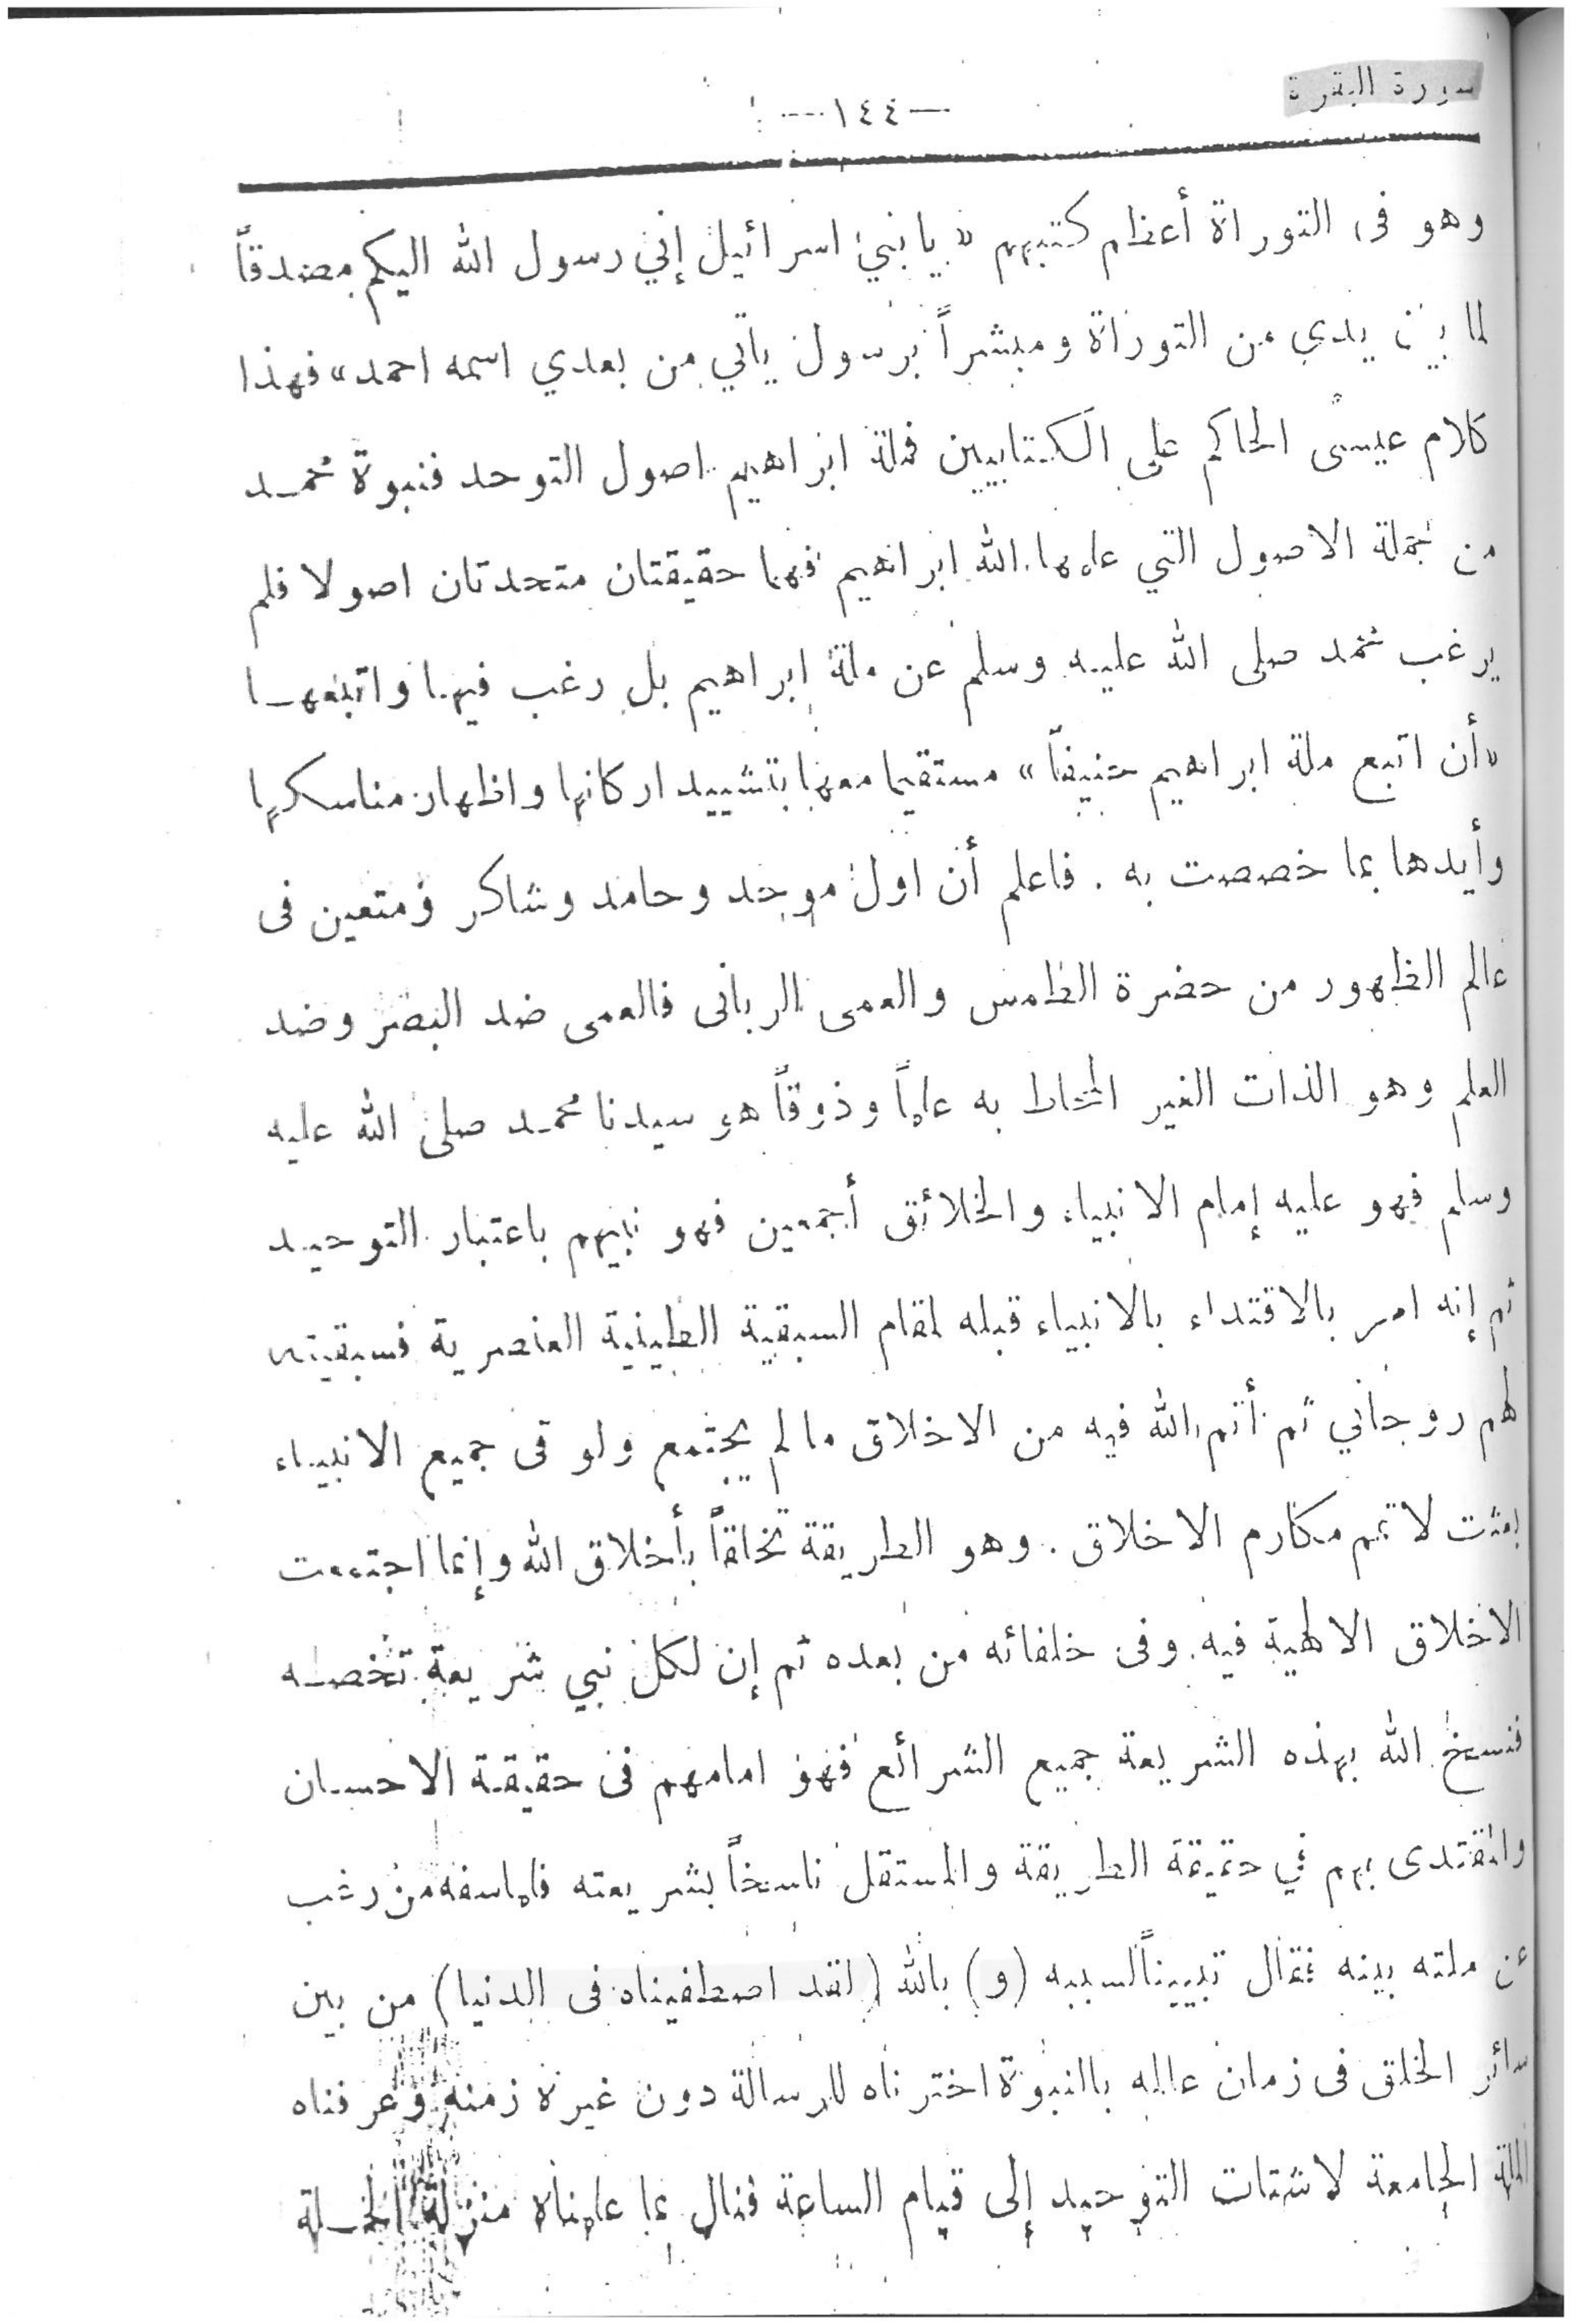 سورة البقرة
—١٤٤—
وهو فى التوراة أعظم كتبهم « يا بني اسرائيل إني رسول الله اليكم مصدقاً
لما بين يدي من التوراة ومبشراً برسول يأتي من بعدي اسمه احمد » فهذا
كلام عيسى الحاكم على الكتابيين فملة ابراهيم اصول التوحد فنبوة محمد
من جملة الاصول التي علمها الله ابراهيم فهما حقيقتان متحدتان اصولا فلم
يرغب محمد صلى الله عليه وسلم عن ملة ابراهيم بل رغب فيها واتبعها
« أن اتبع ملة ابراهيم حنيفاً » مستقيما معها بتشييد اركانها واظهار مناسكها
وأيدها بما خصصت به . فاعلم أن اول موحد وحامد وشاكر ومتعين فى
عالم الظهور من حضرة الطامس والعمى الربانى فالعمى ضد البصر وضد
العلم وهو الذات الغير المحاط به علماً وذوقاً هو سيدنا محمد صلى الله عليه
وسلم فهو عليه إمام الانبياء والخلائق أجمعين فهو نبيهم باعتبار التوحيد
ثم إنه امر بالاقتداء بالانبياء قبله لمقام السبقية الطينية العنصرية فسبقيته
لهم روحاني ثم أتم الله فيه من الاخلاق ما لم يجتمع ولو فى جميع الانبياء
بعثت لاتمم مكارم الاخلاق . وهو الطريقة تخلقاً بأخلاق الله وإنما اجتمعت
الاخلاق الالهية فيه وفى خلفائه من بعده ثم إن لكل نبي شريعة تخصه
فنسخ الله بهذه الشريعة جميع الشرائع فهو امامهم فى حقيقة الاحسان
والمقتدى بهم في حقيقة الطريقة والمستقل ناسخاً بشريعته فلما سفه من رغب
عن ملته بينه فقال تبييناً لسببه (و) بالله (لقد اصطفيناه فى الدنيا) من بين
سائر الخلق فى زمان عالمه بالنبوة اخترناه للرسالة دون غيره زمنه وعرفناه
الملة الجامعة لاشتات التوحيد إلى قيام الساعة فنال بما علمناه منزلة الخلة